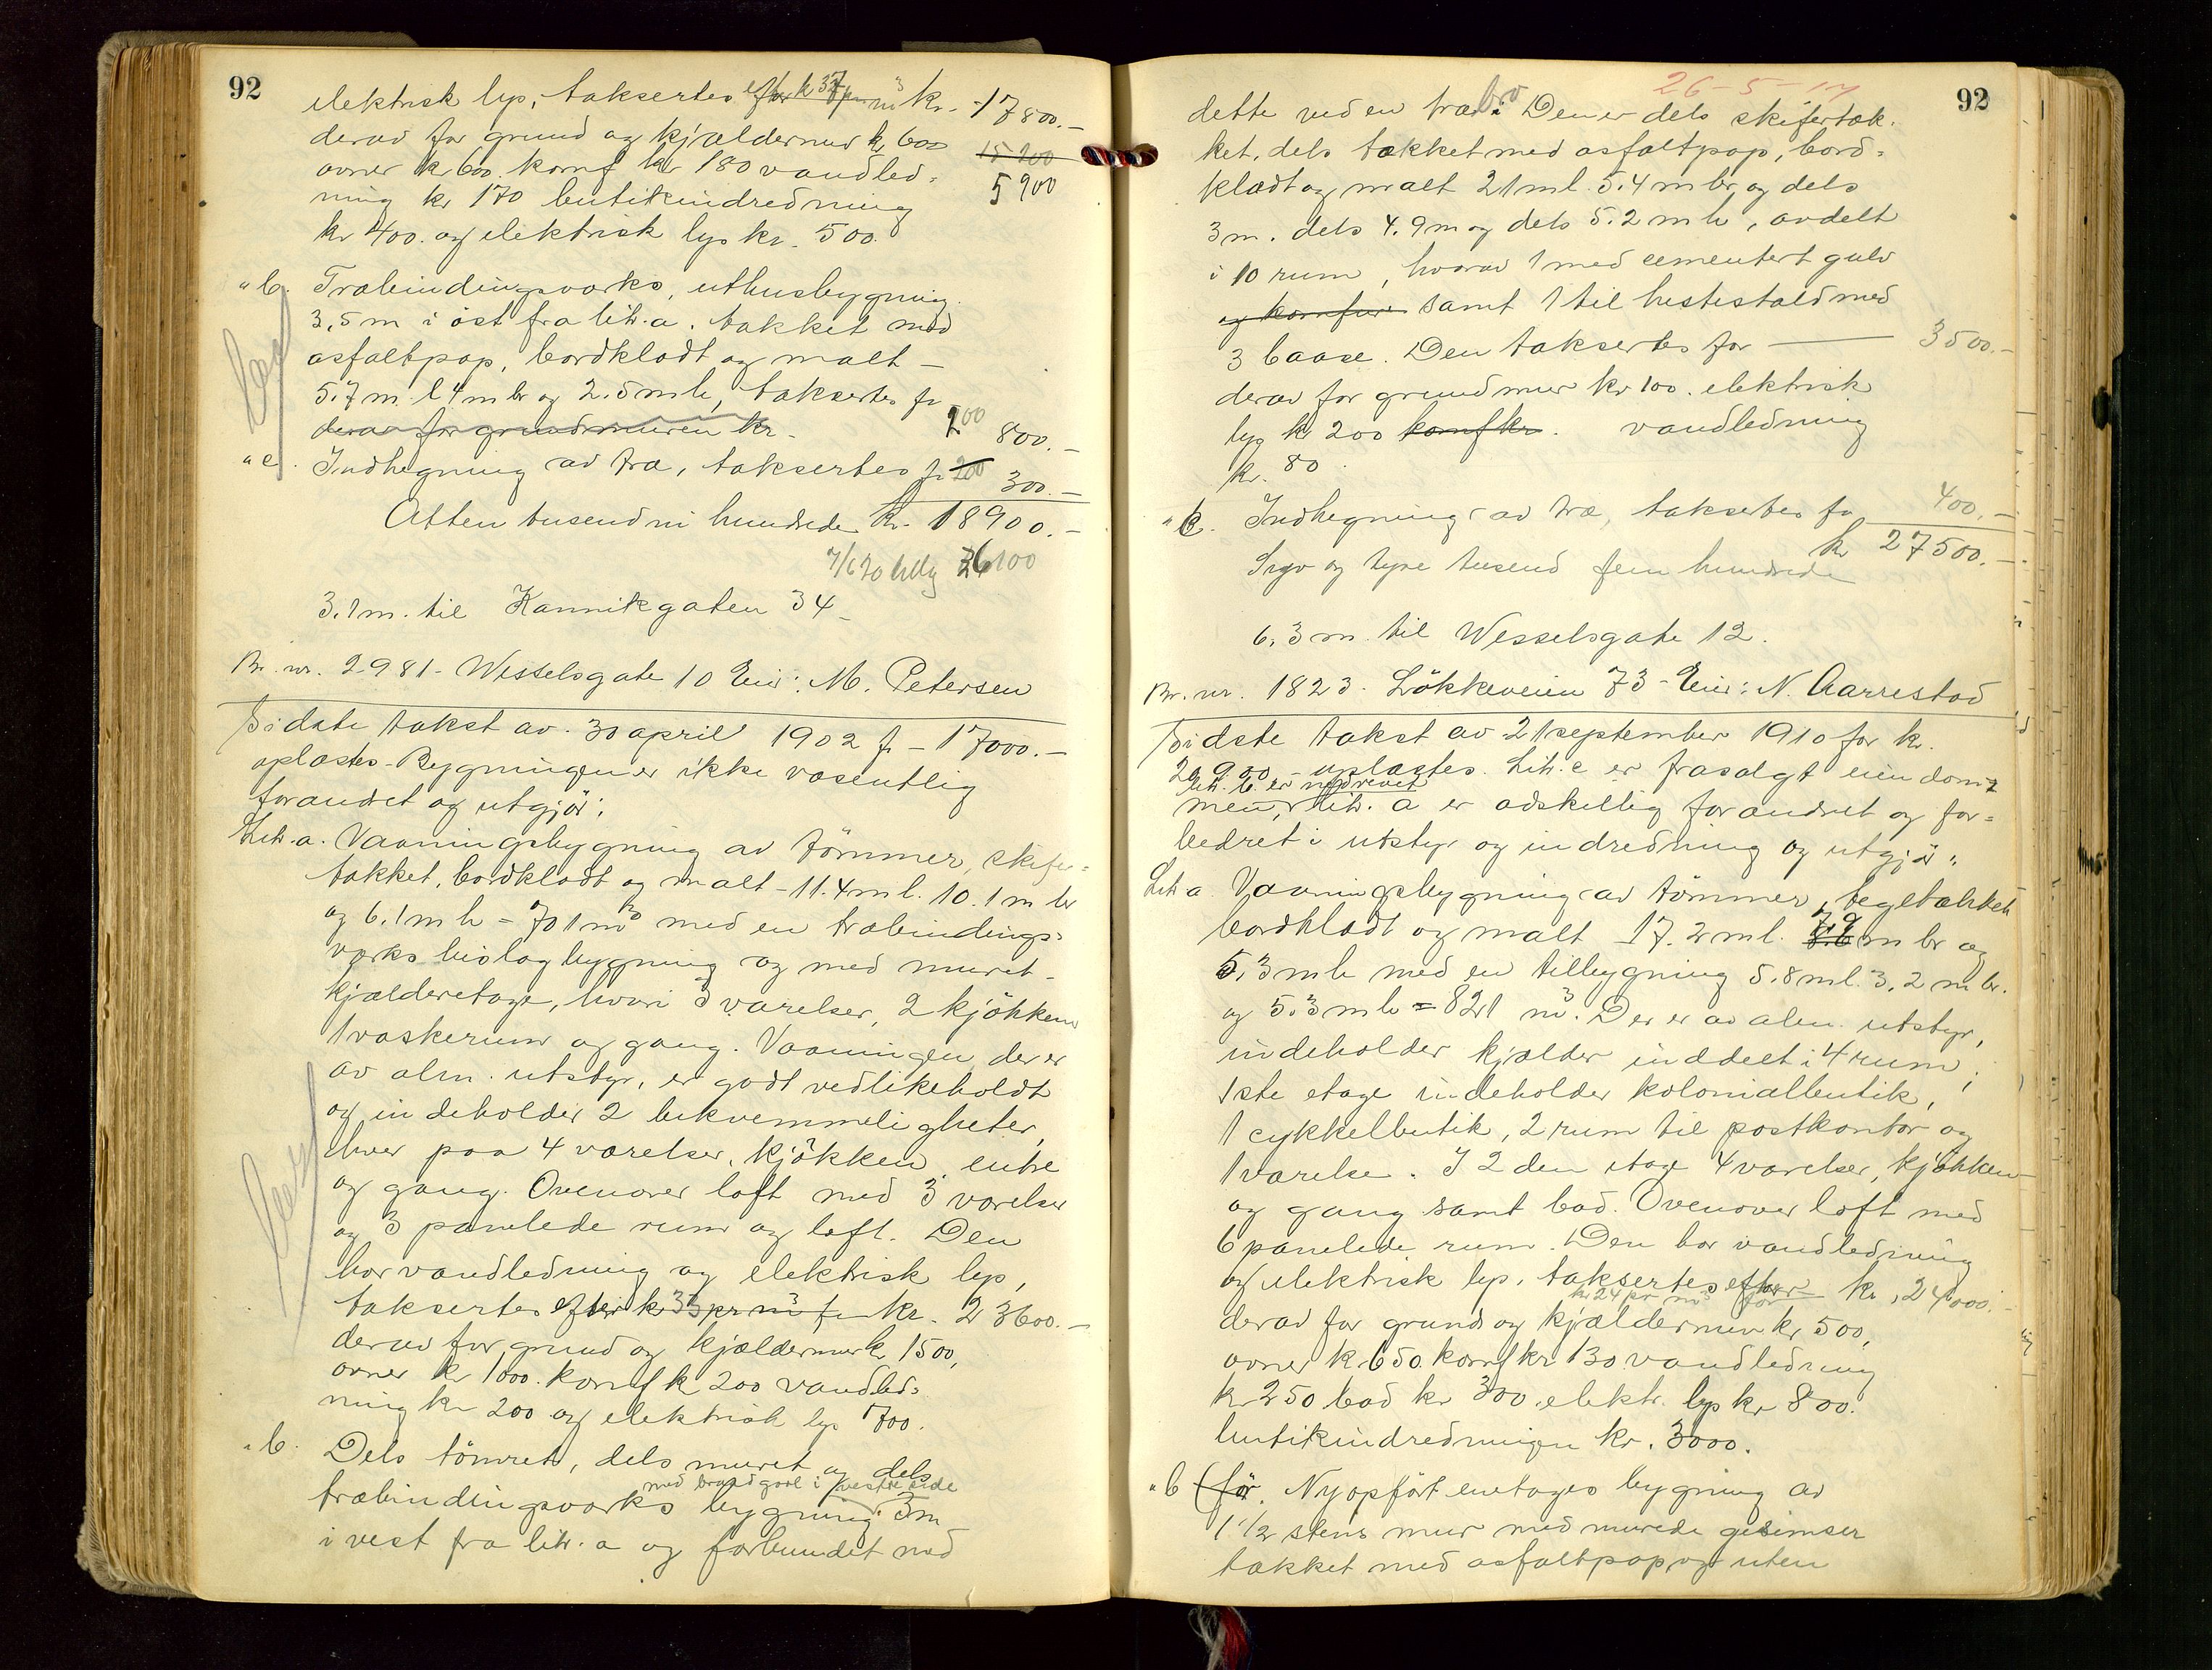 92
elektrisk lys, taksertes efter k 37 pr m³ kr. 17800.-
derav for grund og kjældermur kr 600 15200
ovner kr 600. komf kr 180 vandled= 5900
ning kr 170 butikindredning
kr 400. og elektrisk lys kr. 500.
"b. Træbindingsværks, uthusbygning
3,5 m i öst fra litr. a. tækket med
asfaltpap, bordklædt og malt -
5.7 m l 4 m br og 2.5 m h, taksertes fr
derav for grundmuren kr. 200 800.-
"c. Indhegning av træ, taksertes fr 200 300.-
Atten tusend ni hundrede kr. 18900.-
7/6 20 26100
3.1 m. til Kannikgaten 34 -
Br. nr. 2981 - Wesselsgate 10 Eier: M. Petersen
Sidste takst av 30 april 1902 fr - 17000.-
oplæstes - Bygningen er ikke væsentlig
forandret og utgjör:
Litr. a. Vaaningsbygning av tömmer, skifer=
tækket, bordklædt og malt - 11.4 m l. 10.1 m br
og 6.1 m h = 701 m³ med en træbindings=
værks bislagbygning og med muret -
kjælderetage, hvori 3 værelser, 2 kjökken
1 vaskerum og gang. Vaaningen der er
av alm. utstyr, er godt vedlikeholdt
og indeholder 2 bekvemmeligheter,
hver paa 4 værelser, kjökken, entre
og gang. Ovenover loft med 3 værelser
og 3 panelede rum og loft. Den
har vandledning og elektrisk lys,
taksertes efter kr 33 pr m³ for kr. 23600.-
derav for grund og kjældermur kr 1500,
ovner kr 1000. komf k 200 vandled=
ning kr 200 og elektrisk lys 700.
"b. Dels tömret, dels muret og dels
med brandgavl i vestre side
træbindingsværks bygning 3 m
i vest fra litr. a og forbundet med
26-5-17
92
dette ved en træbro Den er dels skifertæk.
ket, dels tækket med asfaltpap, bord=
klædt og malt 21 m l. 5.4 m br, og dels
3 m. dels 4.9 m og dels 5.2 m h, avdelt
i 10 rum, hvorav 1 med cementert gulv
og komfur samt 1 til hestestald med
3 baase. Den taksertes for 3500.-
derav for grundmur kr 100. elektrisk
lys kr 200 komf kr. vandledning
kr. 80.
"c. Indhegning av træ, taksertes fr 400.-
kr 27500.-
Syv og tyve tusend fem hundrede
6.3 m. til Wesselsgate 12.
Br. nr. 1823. Lökkeveien 73 - Eier: N. Aarrestad
Sidste takst av 21 september 1910 for kr.
20900 - oplæstes. Litr. c er frasolgt eiendom=
Litr. b. er nedrevet
men, litr. a er adskillig forandret og for=
bedret i utstyr og indredning og utgjör:
Litr a. Vaaningsbygning av tömmer, tegltækket
bordklædt og malt 17.2 m l. 7.9 m br og
5.3 m h med en tilbygning 5.8 m l. 3.2 m br.
og 5.3 m h = 821 m³. Der er av alm. utstyr,
indeholder kjælder inddelt i 4 rum;
1ste etage indeholder kolonialbutik,
1 cykkelbutik, 2 rum til postkontor og
1 værelse. I 2den etage 4 værelser, kjökken
og gang samt bad. Ovenover loft med
6 panelede rum. Den har vandledning
og elektrisk lys, taksertes efter kr. 24000.-
kr 24 pr m³ for
derav for grund og kjældermur kr 500,
ovner kr 650. komf kr 130 vandledning
kr 250 bad kr 300. elektr. lys kr 800.
butikindredningen kr. 3000.
"b (för. Nyopfört enetages bygning av
1 1/2 stens mur med murede gesimser
tækket med asfaltpap og uten